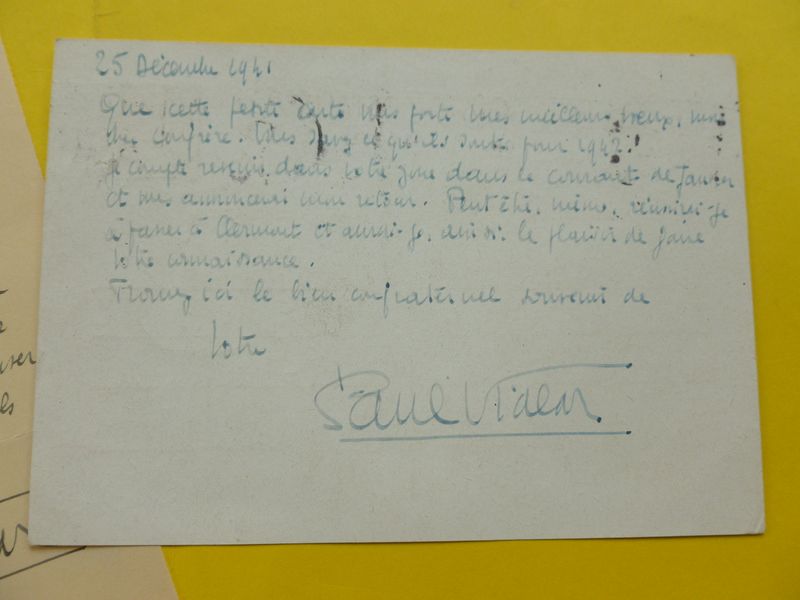 25 Décembre 1941
Que cette petite carte vous porte mes meilleurs voeux, mon
cher Confrère. Vous savez ce qu'ils sont pour 1942.
Je compte revenir dans votre zone dans le courant de Janvier
et vous annoncerai mon retour. Peut être, même, réussirai-je
à passer à Clermont et aurai-je, ainsi le plaisir de faire
votre connaissance.
Trouvez ici le bien confraternel souvenir de
Votre
Paul Vidal
user